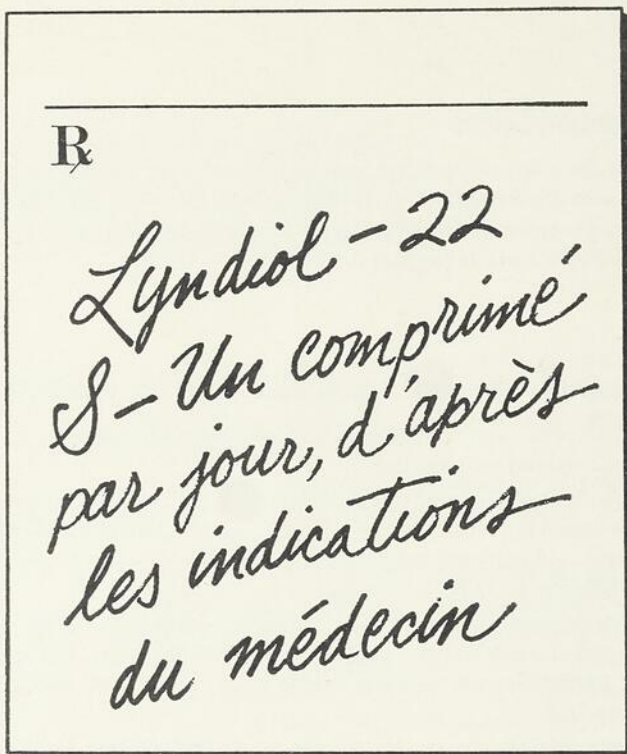 ℞
Lyndiol-22
S-Un comprimé
par jour, d'après
les indications
du médecin